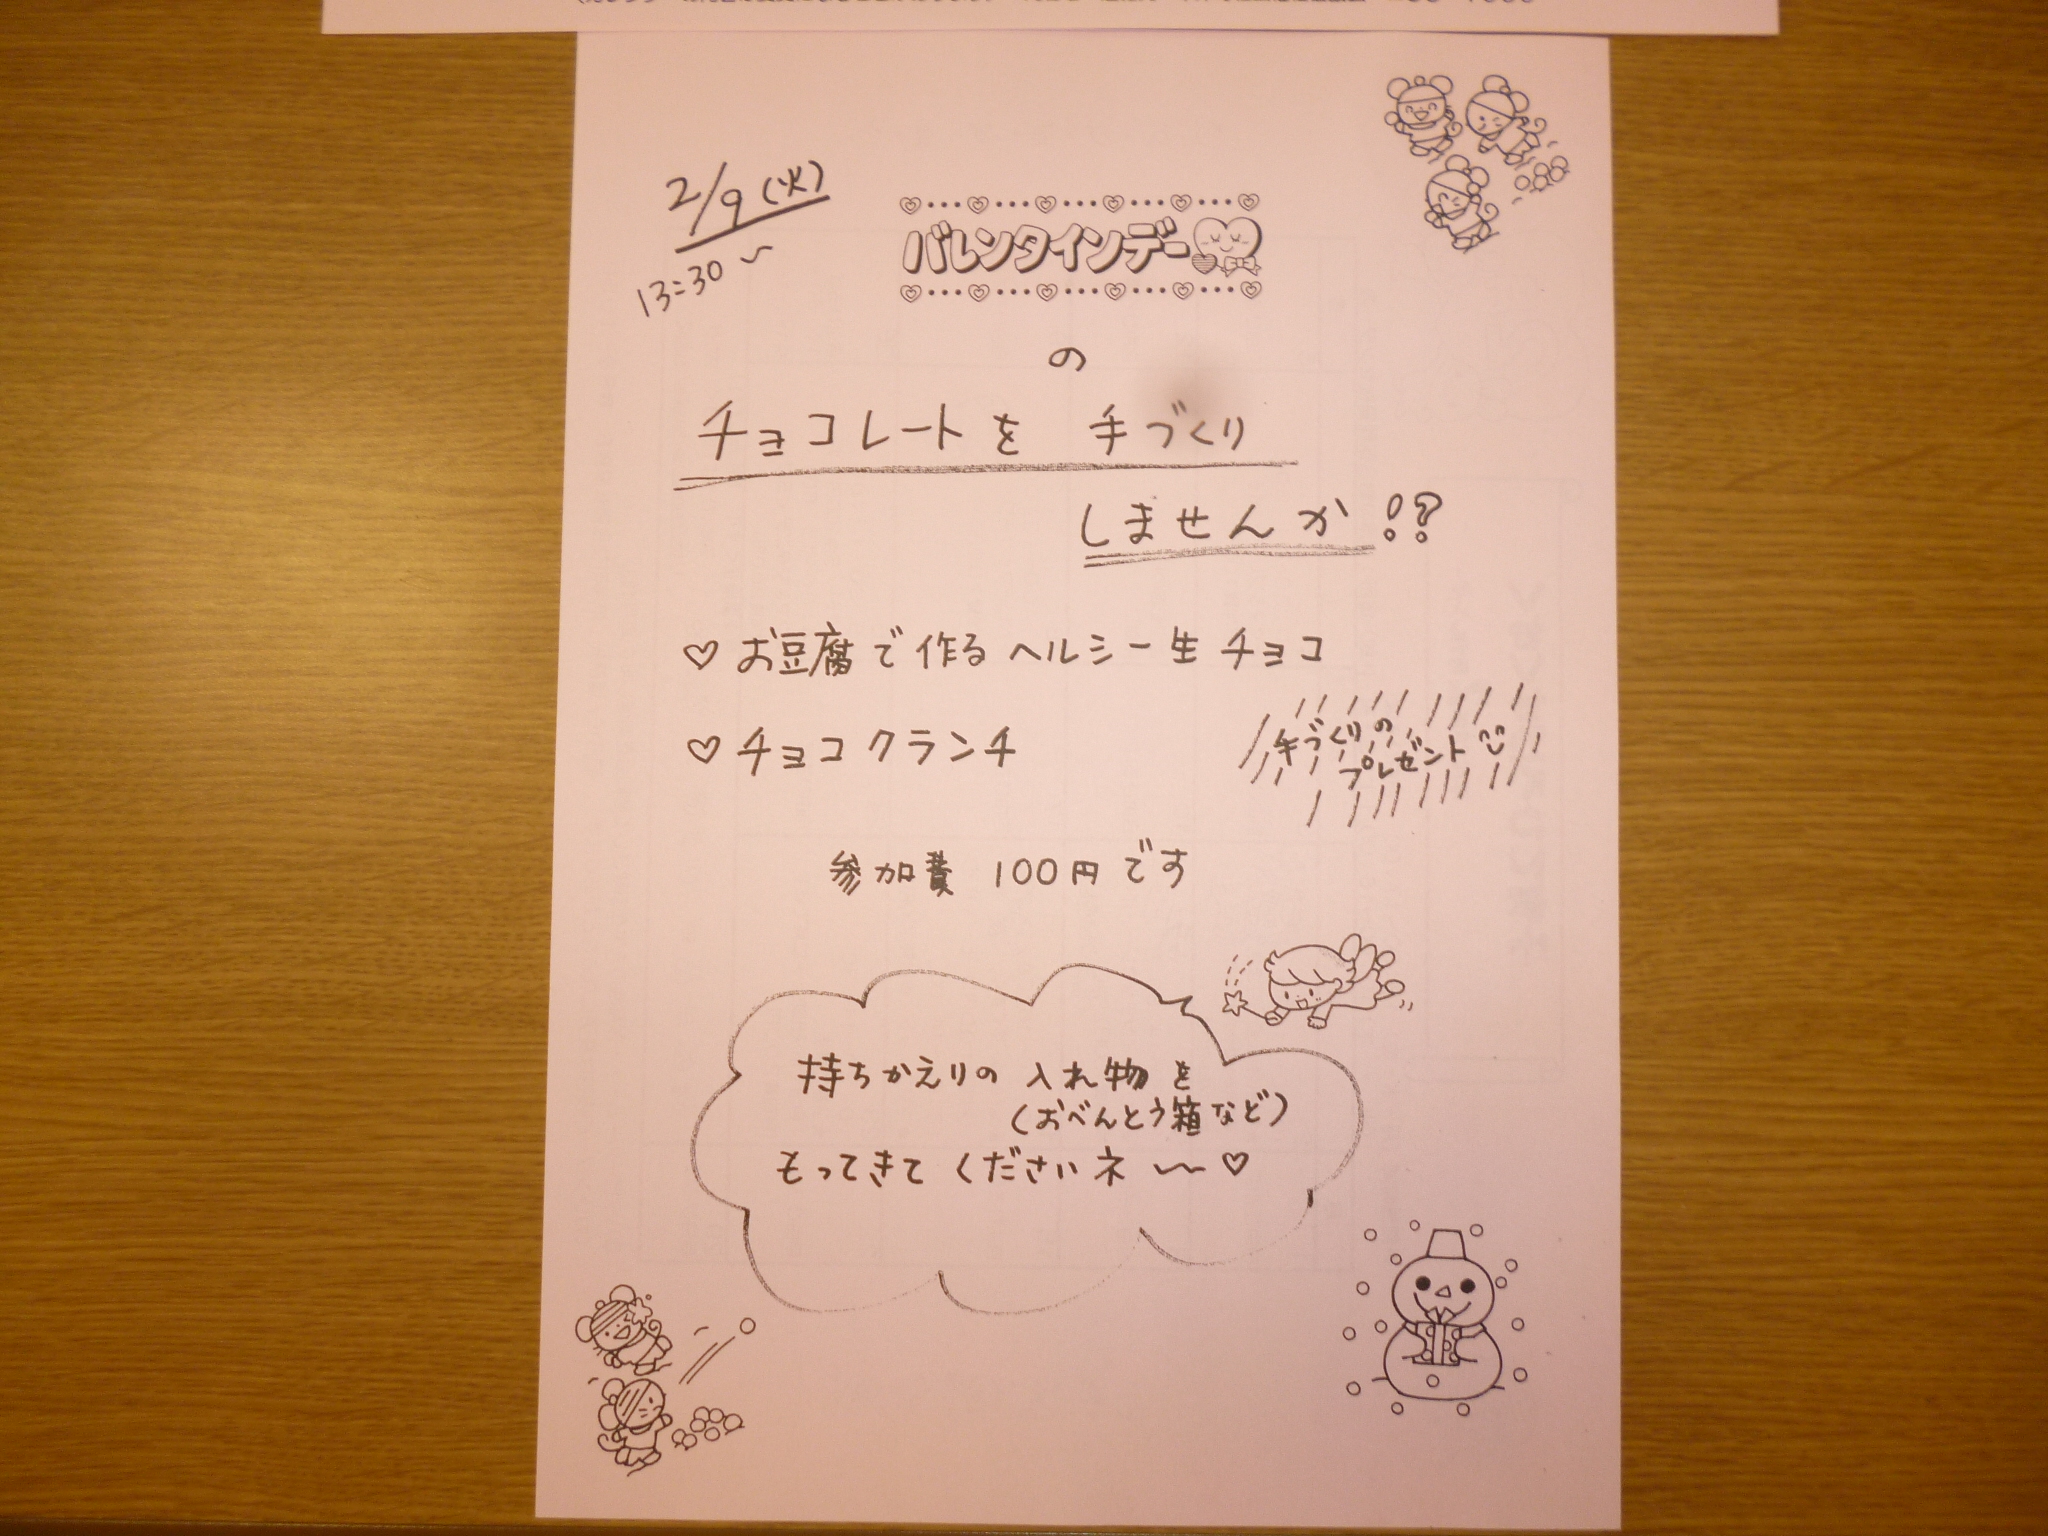 2/9(火)
13:30～
バレンタインデー
の
チョコレートを 手づくり
しませんか!?
♡ お豆腐で作るヘルシー生チョコ
♡ チョコクランチ
手づくりの
プレゼント
参加費 100円です
持ちかえりの 入れ物を
(おべんとう箱など)
もってきて くださいネ～♡